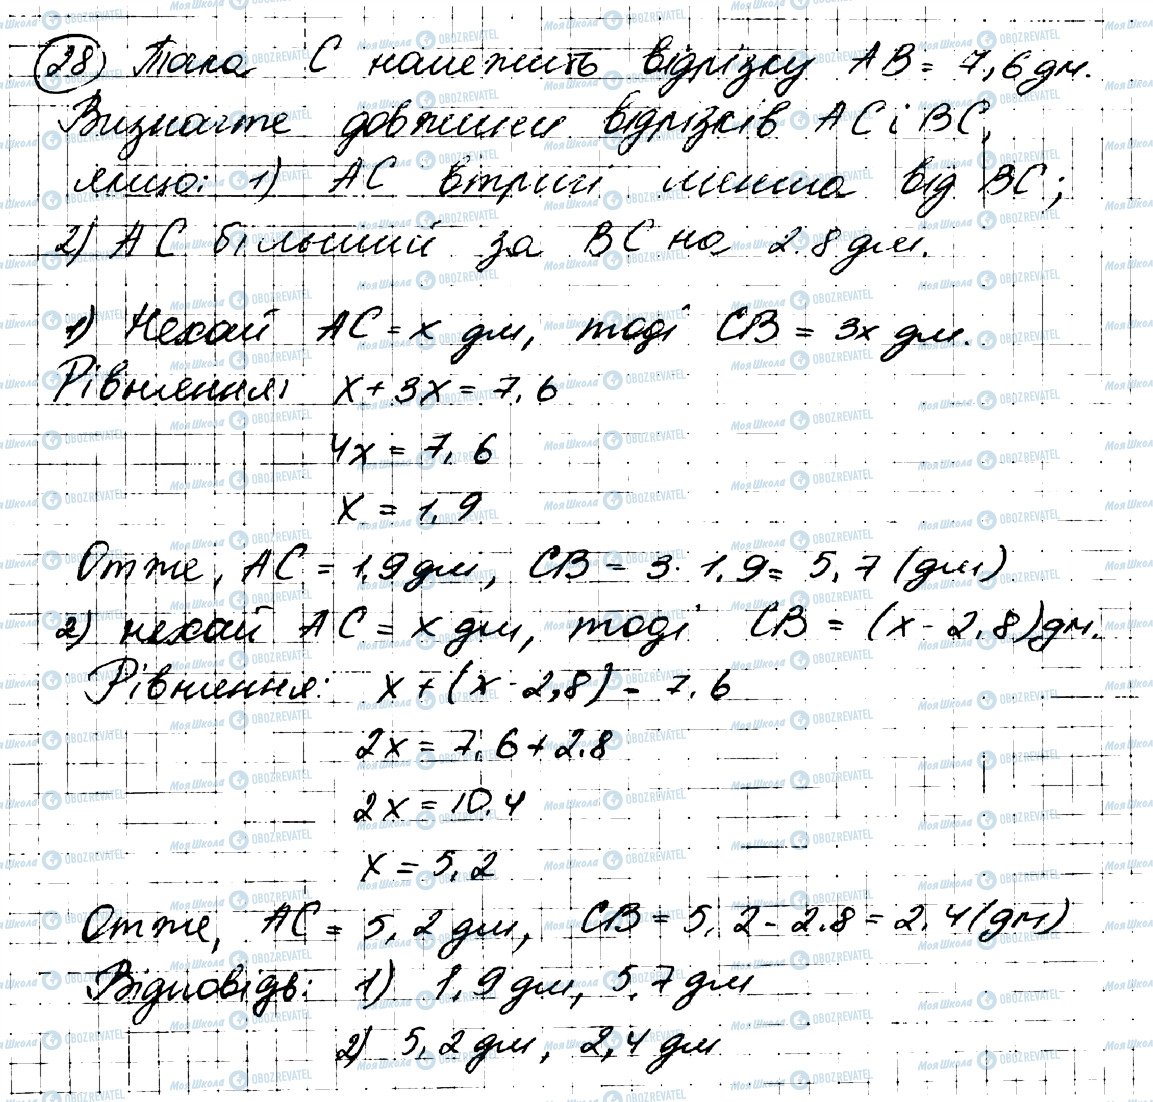 28) Точка C належить відрізку AB = 7,6 дм.
Визначте довжини відрізків AC і BC,
якщо: 1) AC втричі менша від BC;
2) AC більший за BC на 2.8 дм.
1) Нехай AC = x дм, тоді CB = 3x дм.
Рівняння: x + 3x = 7,6
4x = 7,6
x = 1,9
Отже, AC = 1,9 дм, CB = 3 · 1,9 = 5,7 (дм)
2) нехай AC = x дм, тоді CB = (x - 2,8) дм.
Рівняння: x + (x - 2,8) = 7,6
2x = 7,6 + 2.8
2x = 10,4
x = 5,2
Отже, AC = 5,2 дм, CB = 5,2 - 2.8 = 2,4 (дм)
Відповідь: 1) 1,9 дм, 5,7 дм
2) 5,2 дм, 2,4 дм